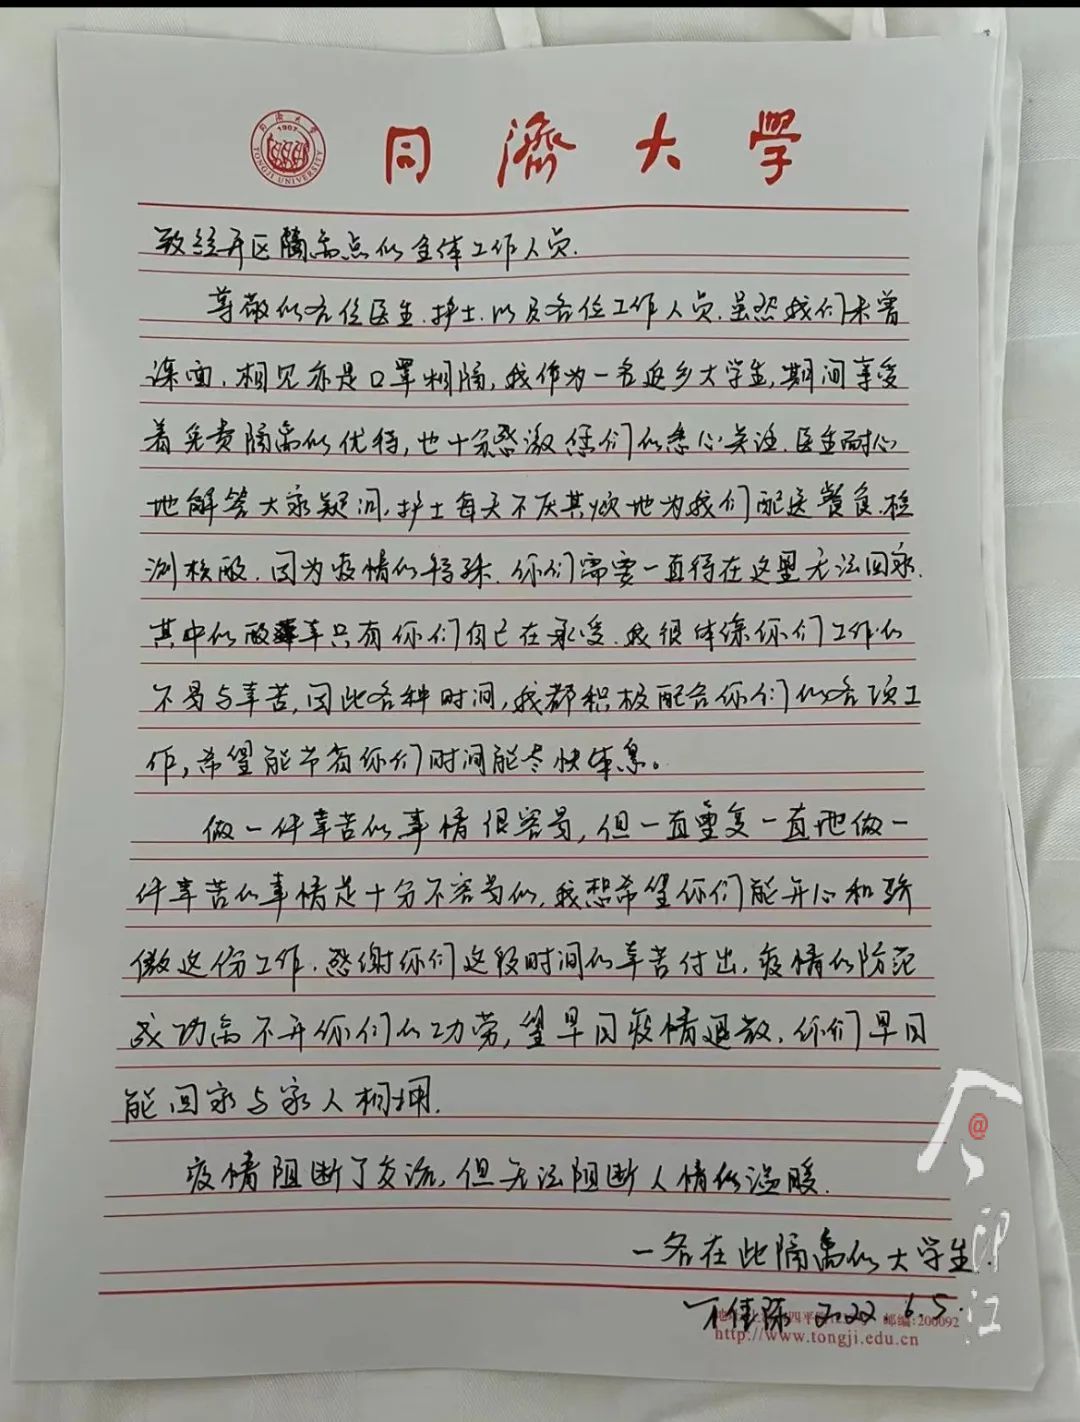 同濟大學
同濟大學
1907
TONGJI UNIVERSITY
致经开区隔离点的全体工作人员.
尊敬的各位医生.护士.以及各位工作人员.虽然我们未曾
谋面,相见亦是口罩相隔,我作为一名返乡大学生,期间享受
着免费隔离的优待,也十分感激您们的悉心关注.医生耐心
地解答大家疑问,护士每天不厌其烦地为我们配送餐食.检
测核酸.因为疫情的特殊.你们需要一直待在这里无法回家.
其中的酸辛只有你们自己在承受.我很体谅你们工作的
不易与辛苦,因此各种时间,我都积极配合你们的各项工
作,希望能节省你们时间能尽快休息。
做一件辛苦的事情很容易,但一直重复一直地做一
件辛苦的事情是十分不容易的,我想希望你们能开心和骄
傲这份工作.感谢你们这段时间的辛苦付出,疫情的防范
成功离不开你们的功劳,望早日疫情退散.你们早日
能回家与家人相拥.
疫情阻断了交流,但无法阻断人情的温暖.
一名在此隔离的大学生.
佳 2022.6.5.
四平 邮编:200092
http://www.tongji.edu.cn
@
印江